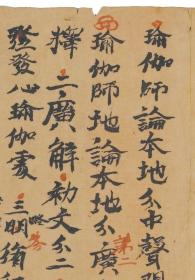 瑜伽師論本地分中聲聞
瑜伽師地論本地分廣
第二
釋二廣解初文分二
發心瑜伽處
三明